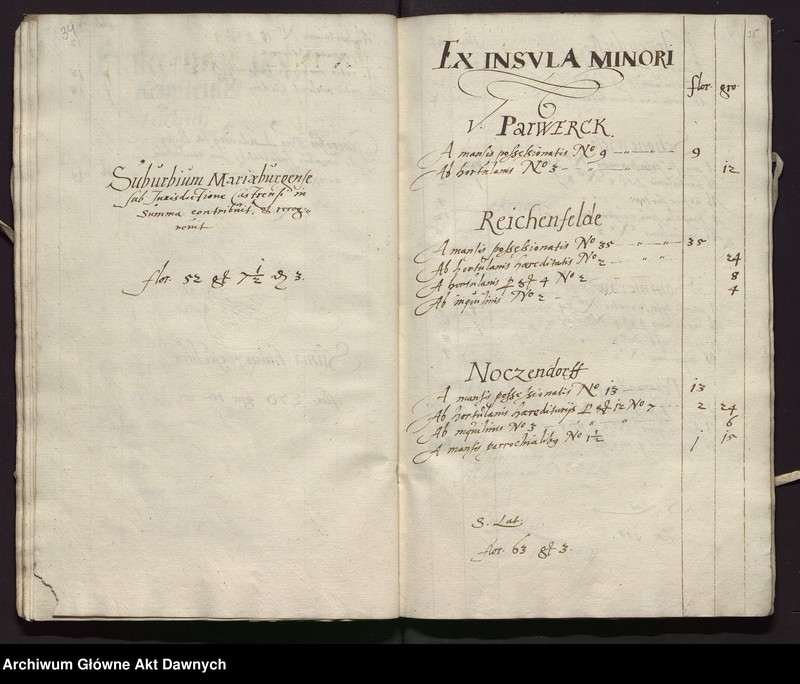 34
Suburbium Mariæburgense
sub Jurisdictione Castrensi in
Summa contribuit, et recog-
novit
flor. 52 gℓ 7 1/2 ₰ 3.
35
EX INSVLA MINORI
flor. gro.
V. ParWERCK.
A mansis possessionatis No 9 9
Ab hortulanis No 3 12
Reichenfelde
A mansis possessionatis No 35 35
Ab hortulanis hæreditatis No 2 24
A hortulanis P gℓ 4 No 2 8
Ab inquilinis No 2 4
Noczendorff
A mansis possessionatis No 13 13
Ab hortulanis hæreditarijs P gℓ 12 No 7 2 24
Ab inquilinis No 3 6
A mansis parrochialibq No 1 1/2 j 15
S. Lat:
flor. 63 gℓ 3.
Archiwum Główne Akt Dawnych